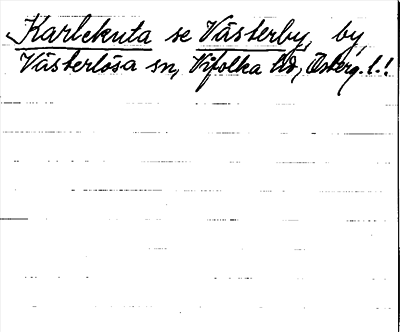 Karlekuta se Västerby, by,
Västerlösa sn, Vifolka hd, Österg. l.!